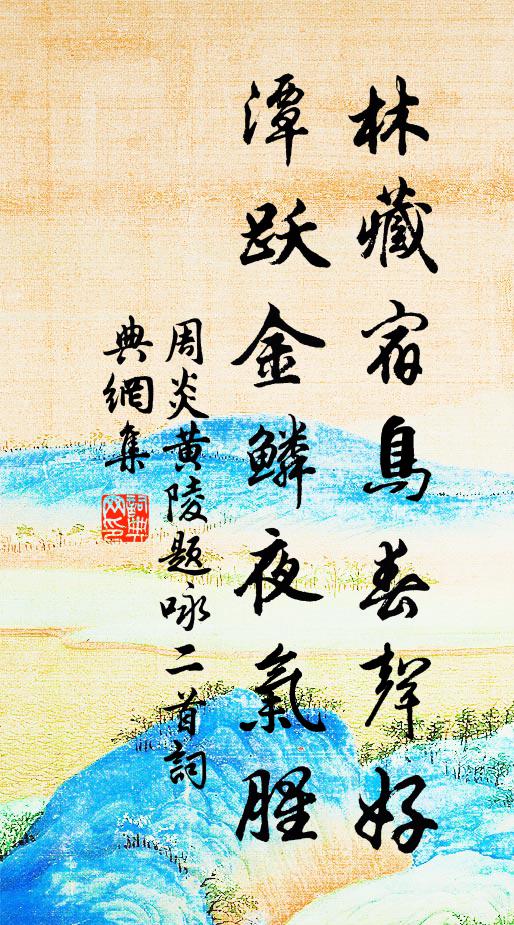 林藏宿鳥春聲好
潭跃金鳞夜氣腥
周炎黄陵题咏二首詞
典網集
詞典